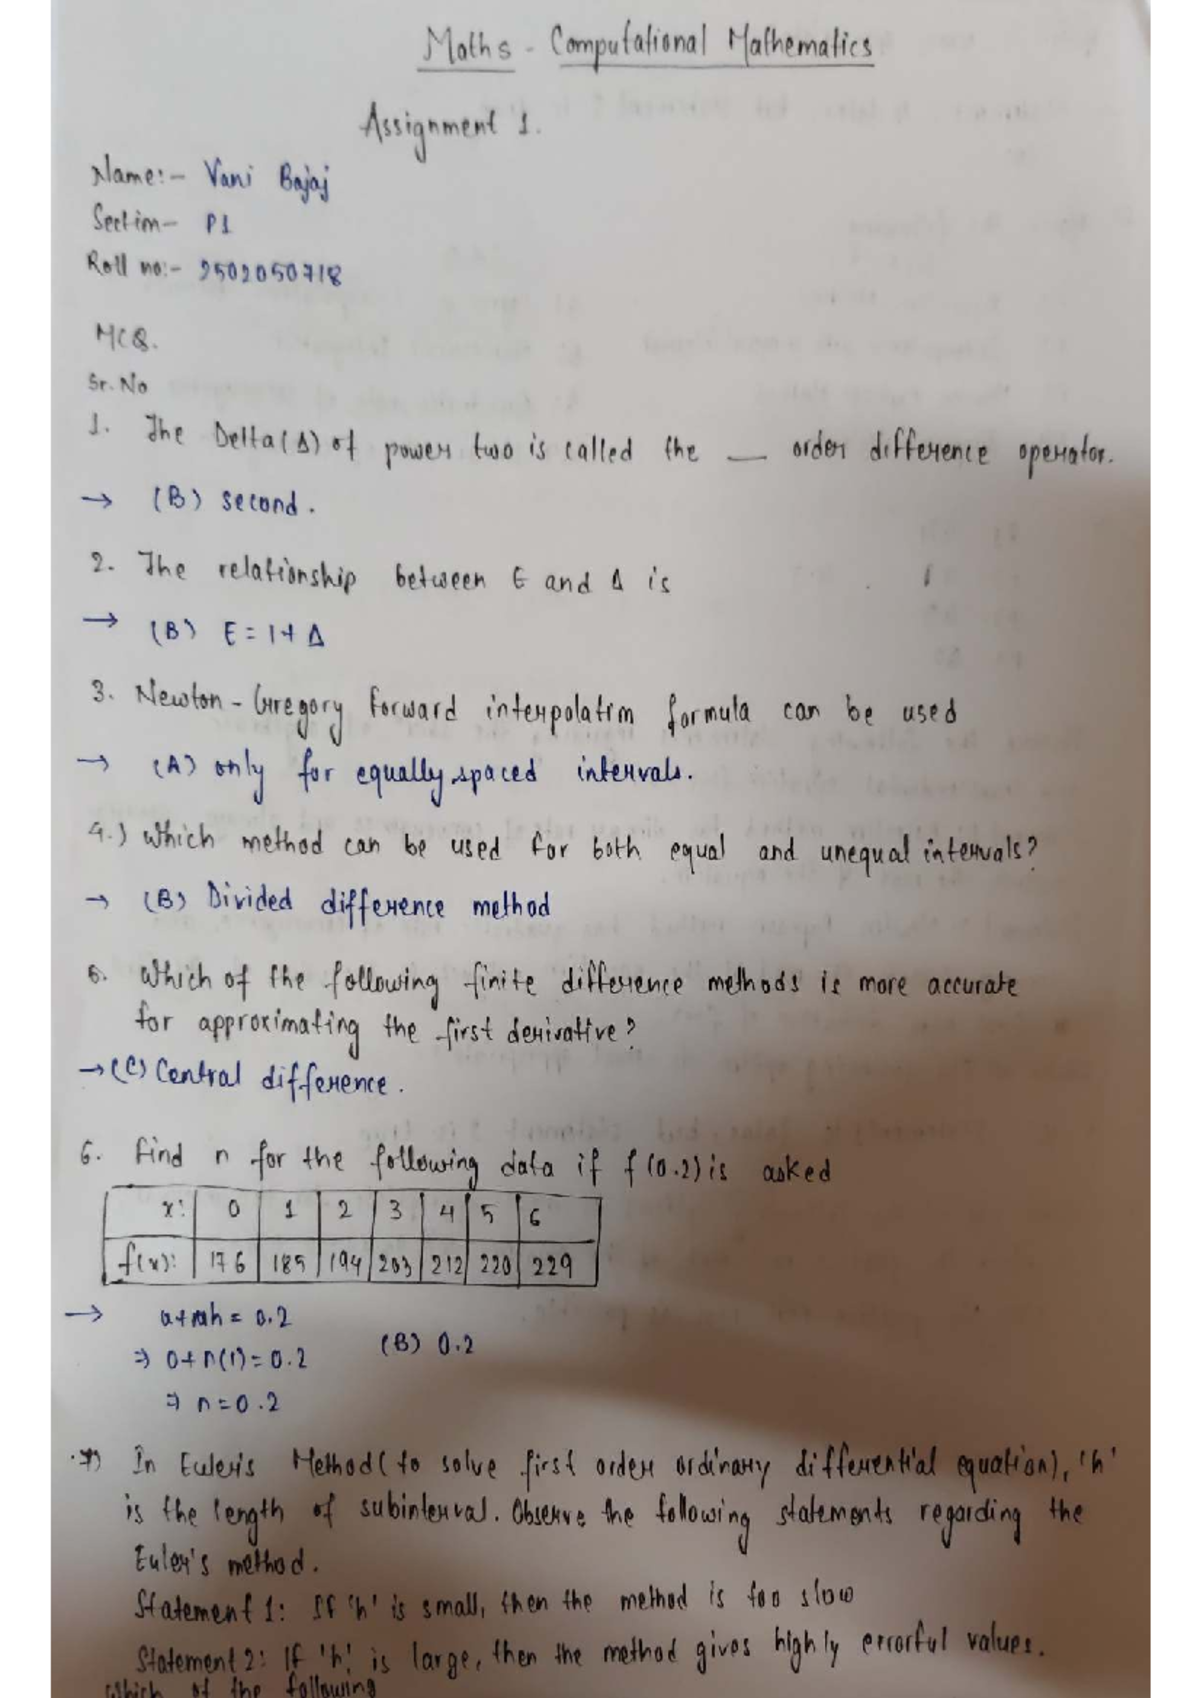 Maths - Computational Mathematics
Assignment 1.
Name:- Vani Bajaj
Section- P1
Roll no:- 2502050718
MCQ.
Sr. No
1. The Delta(Δ) of power two is called the __ order difference operator.
→ (B) second.
2. The relationship between E and Δ is
→ (B) E = 1+ Δ
3. Newton-Gregory forward interpolation formula can be used
→ (A) only for equally spaced intervals.
4.) Which method can be used for both equal and unequal intervals?
→ (B) Divided difference method
5. Which of the following finite difference methods is more accurate
for approximating the first derivative?
→ (C) Central difference.
6. Find n for the following data if f(0.2) is asked
x: 0 1 2 3 4 5 6
f(x): 176 185 194 203 212 220 229
→ a+nh = 0.2
⇒ 0+n(1)=0.2 (B) 0.2
⇒ n=0.2
7) In Euler's Method (to solve first order ordinary differential equation), 'h'
is the length of subinterval. Observe the following statements regarding the
Euler's method.
Statement 1: If 'h' is small, then the method is too slow
Statement 2: If 'h' is large, then the method gives highly errorful values.
Which of the following